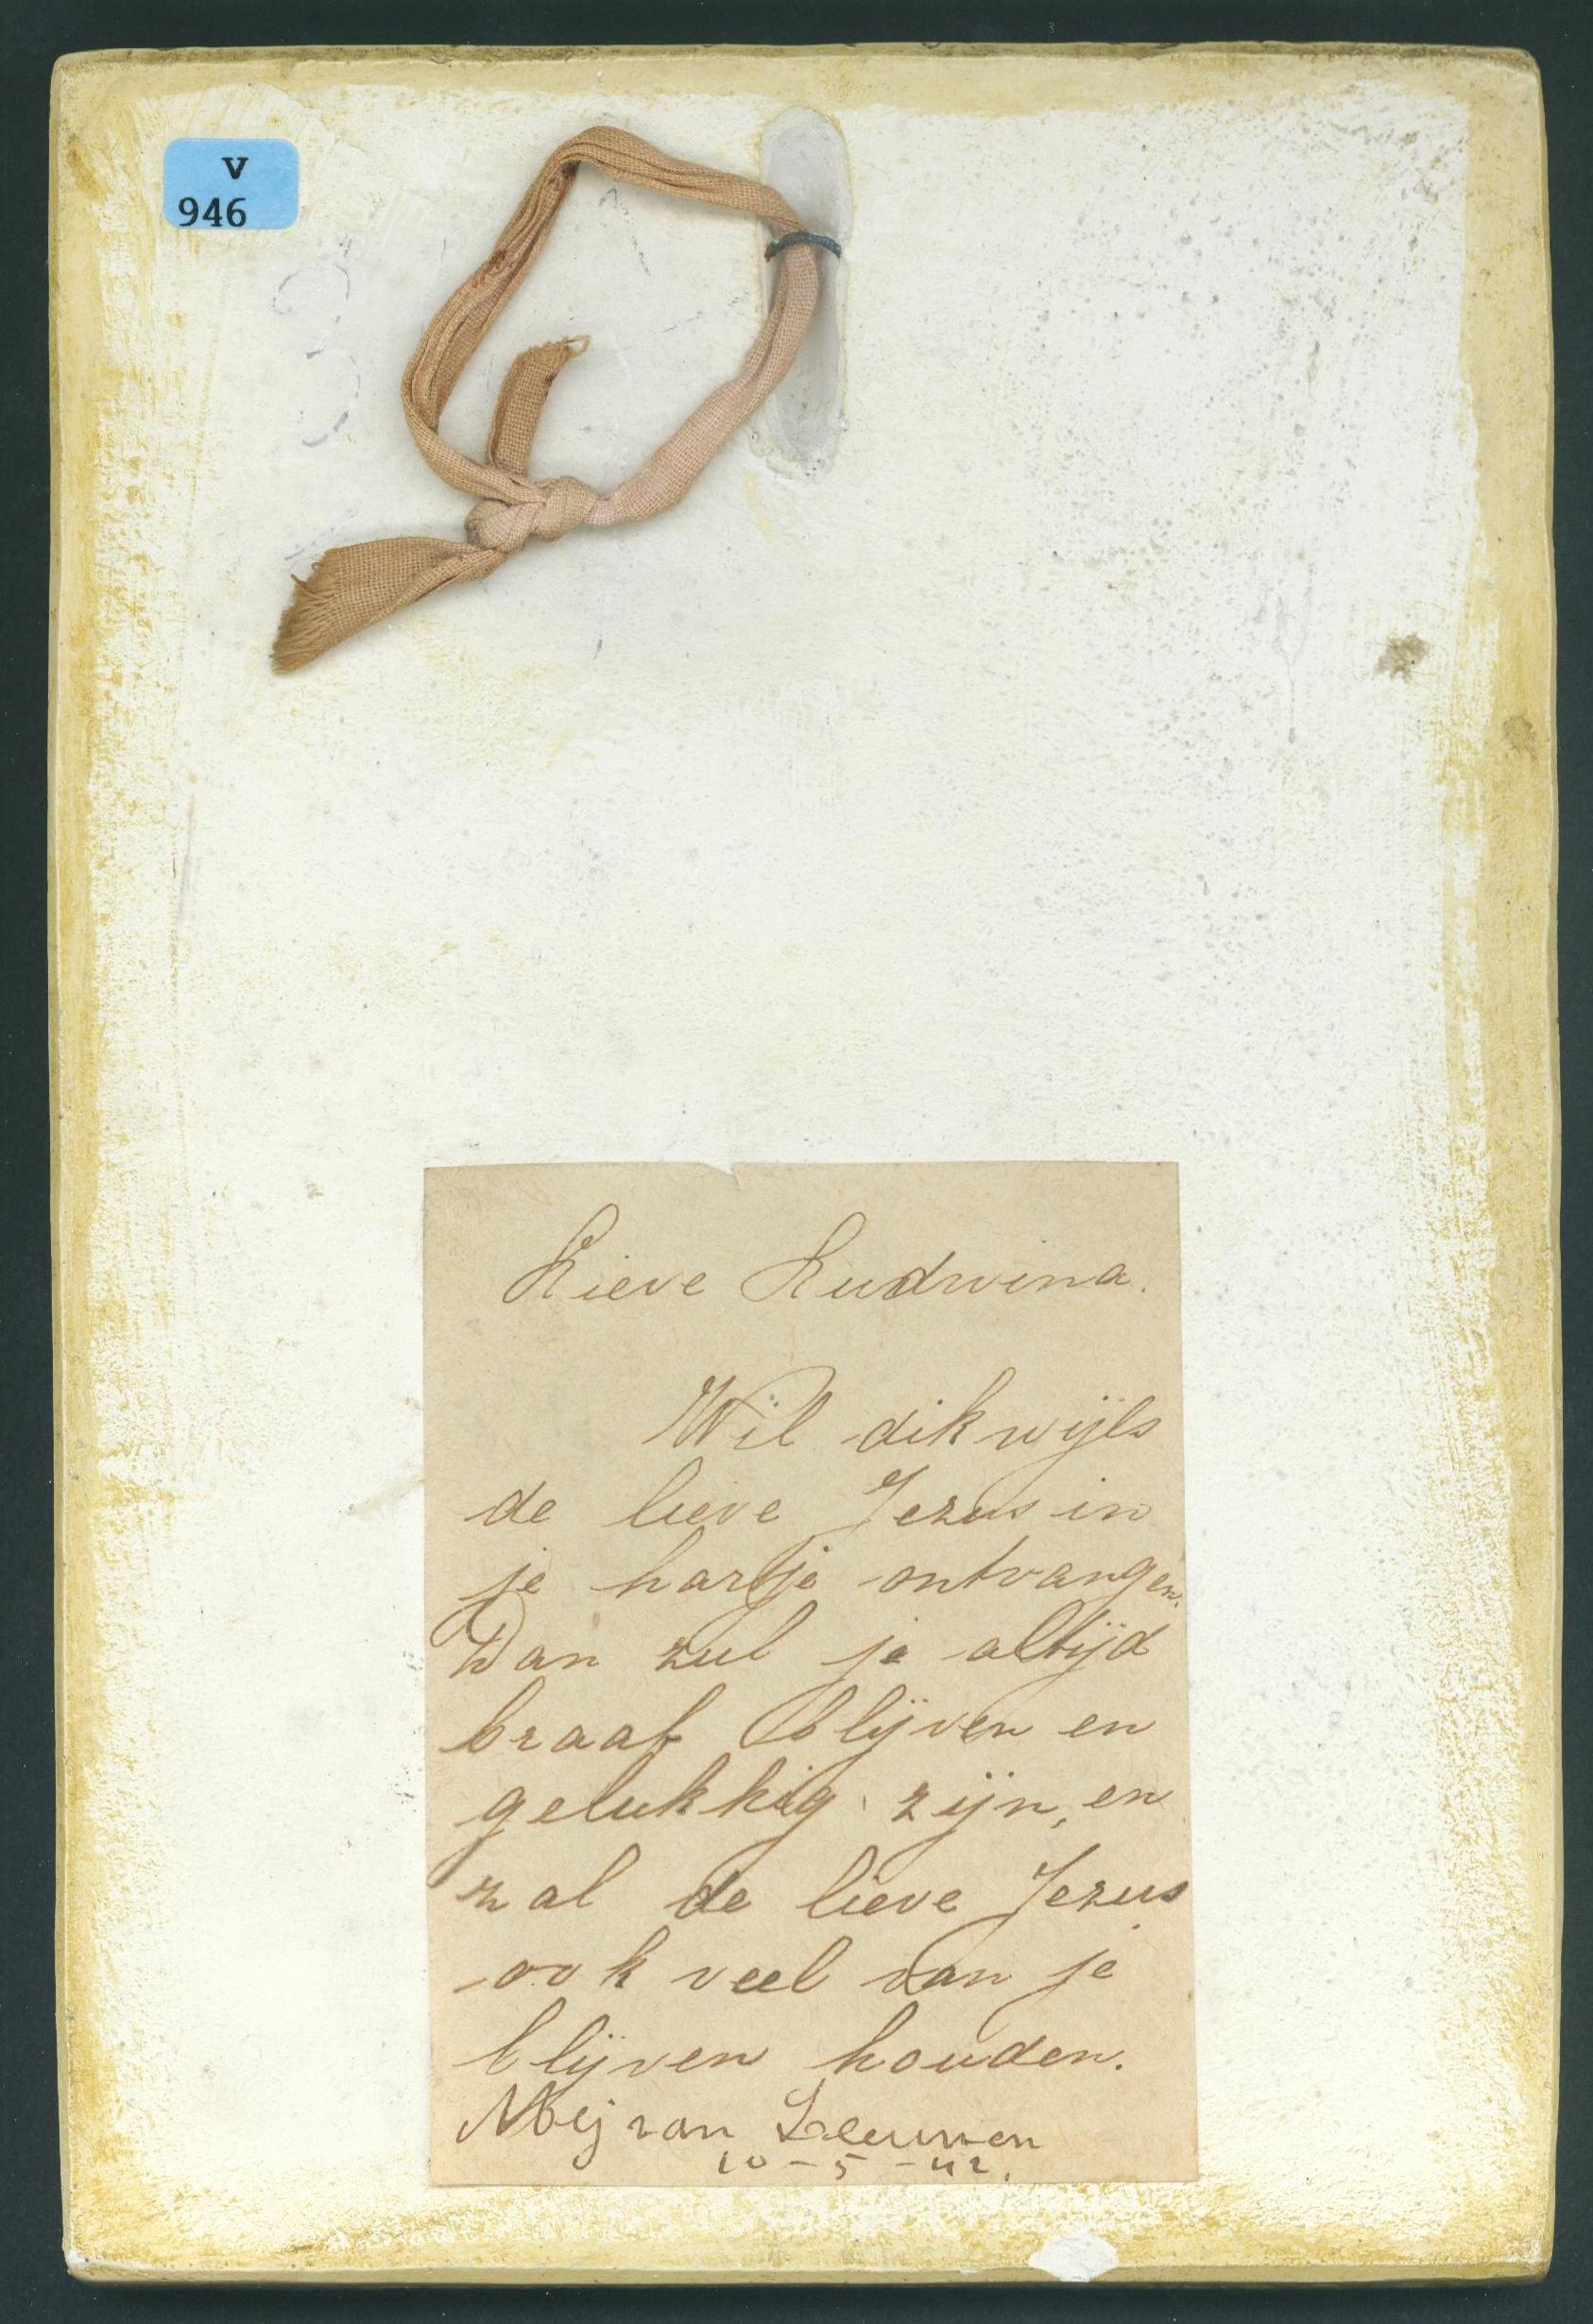 V
946
Lieve Ludwina.
Wil dikwijls
de lieve Jezus in
je hartje ontvangen.
Dan zul je altijd
braaf blijven en
gelukkig zijn, en
zal de lieve Jezus
ook veel van je
blijven houden.
Mej van Leeuwen
10-5-42.